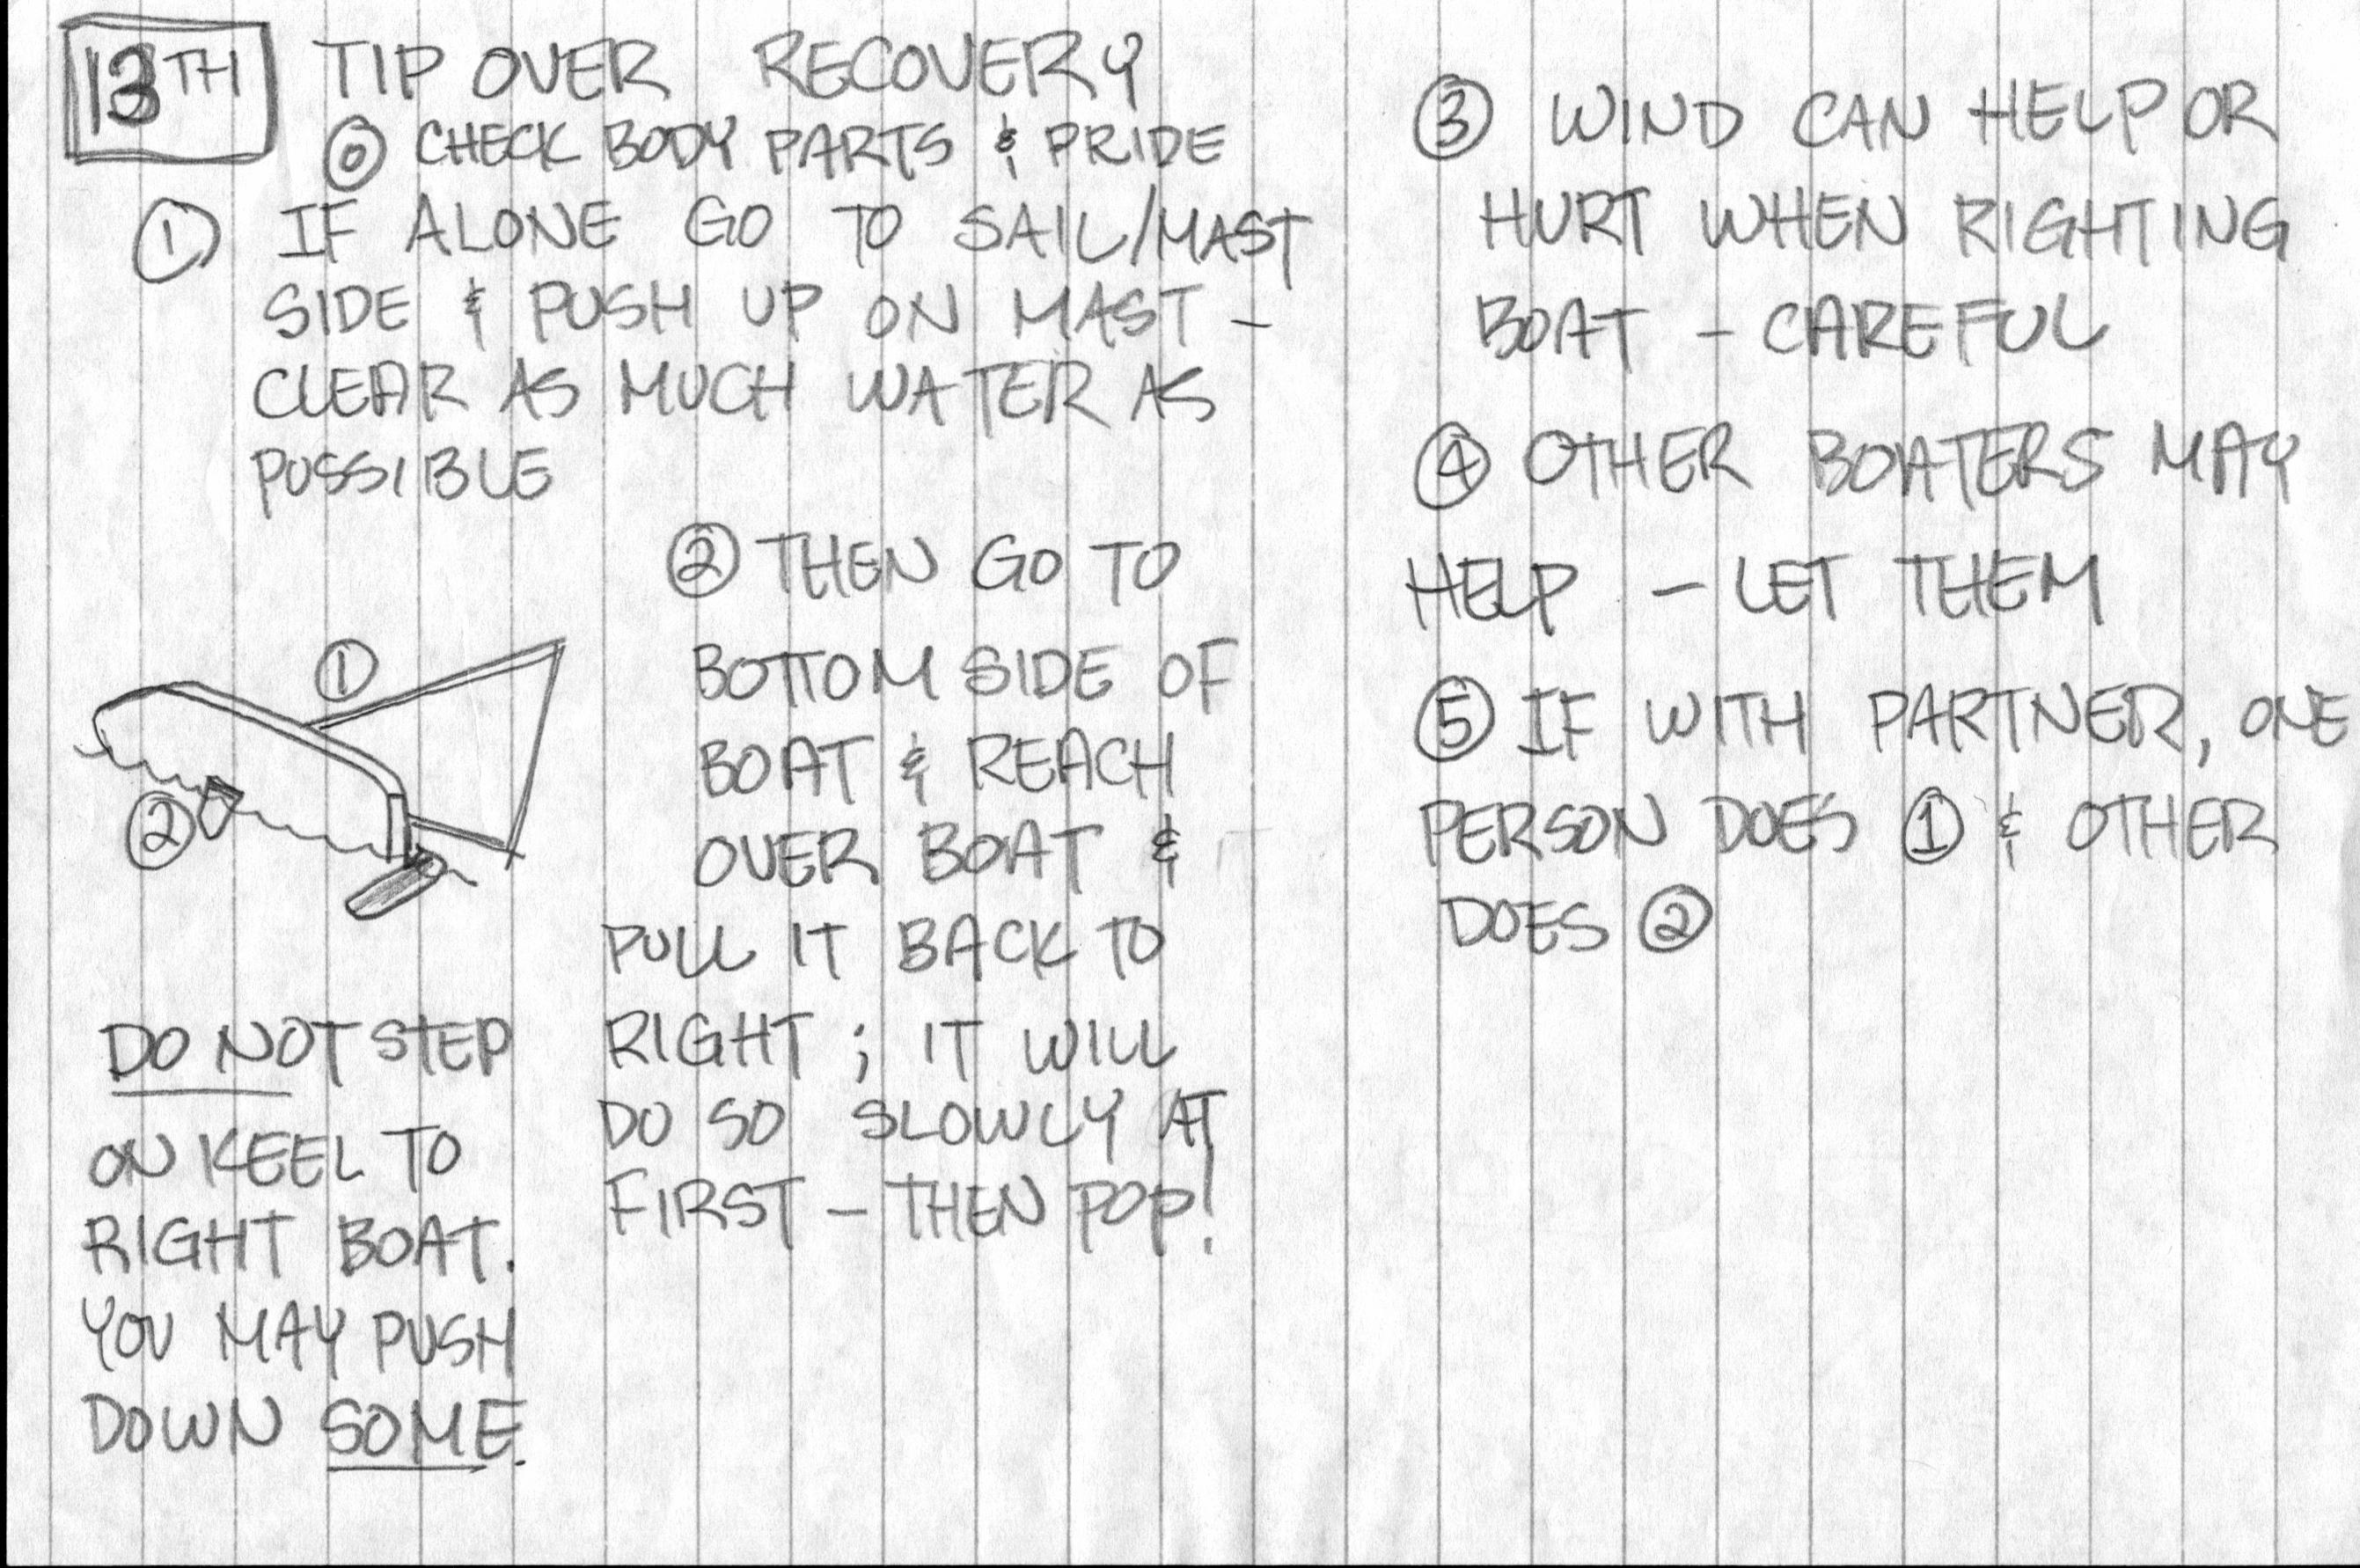 13TH TIP OVER RECOVERY
⓪ CHECK BODY PARTS & PRIDE
① IF ALONE GO TO SAIL/MAST
SIDE & PUSH UP ON MAST -
CLEAR AS MUCH WATER AS
POSSIBLE
② THEN GO TO
BOTTOM SIDE OF
BOAT & REACH
OVER BOAT &
PULL IT BACK TO
RIGHT; IT WILL
DO SO SLOWLY AT
FIRST - THEN POP!
①
②
DO NOT STEP
ON KEEL TO
RIGHT BOAT.
YOU MAY PUSH
DOWN SOME.
③ WIND CAN HELP OR
HURT WHEN RIGHTING
BOAT - CAREFUL
④ OTHER BOATERS MAY
HELP - LET THEM
⑤ IF WITH PARTNER, ONE
PERSON DOES ① & OTHER
DOES ②